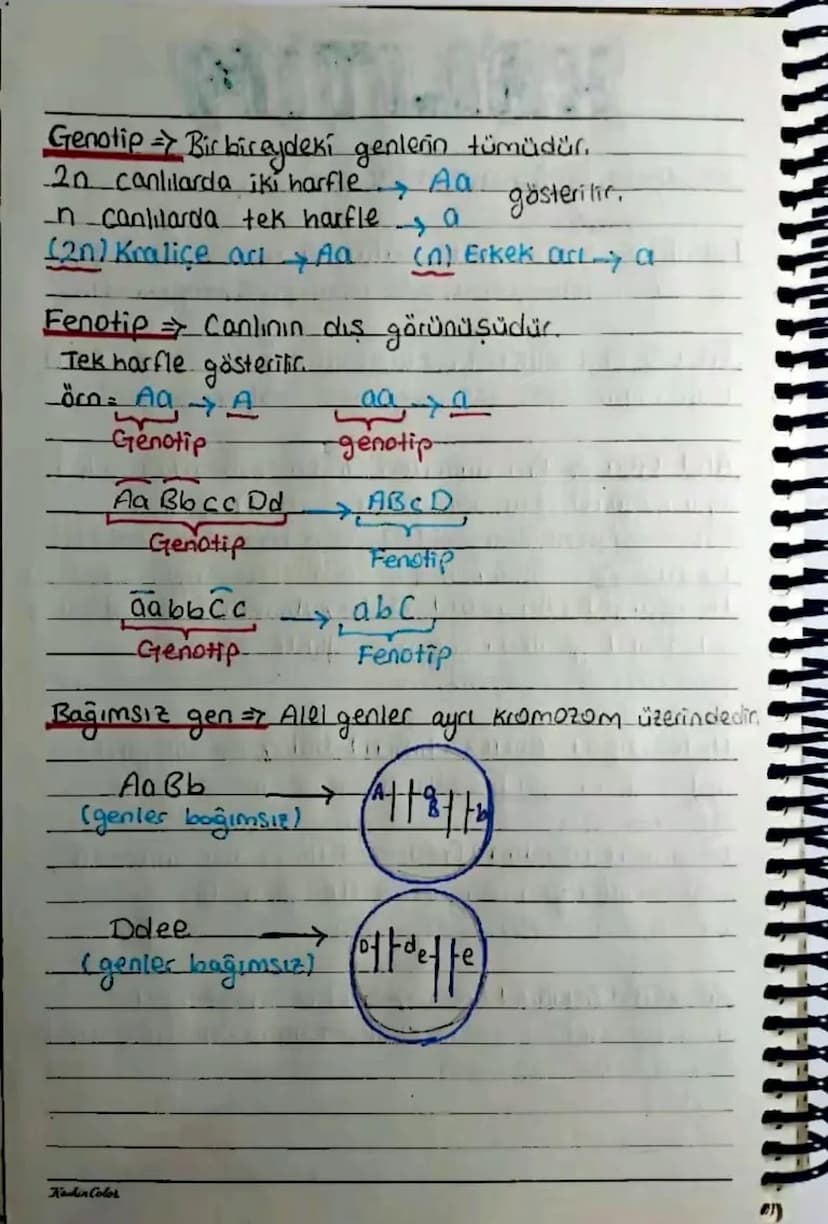 Genotip ⇒ Bir bireydeki genlerin tümüdür.
2n canlılarda iki harfle → Aa gösterilir.
n canlılarda tek harfle → a
(2n) Kraliçe arı → Aa (n) Erkek arı → a
Fenotip ⇒ Canlının dış görünüşüdür.
Tek harfle gösterilir.
örn = Aa → A aa → a
Genotip genotip
Aa Bb cc Dd → ABcD
Genotip Fenotip
aabbCc → abC
Genotip Fenotip
Bağımsız gen ⇒ Alel genler ayrı kromozom üzerindedir.
AaBb → A a B b
(genler bağımsız)
Ddee → D d e e
(genler bağımsız)
KadınColor